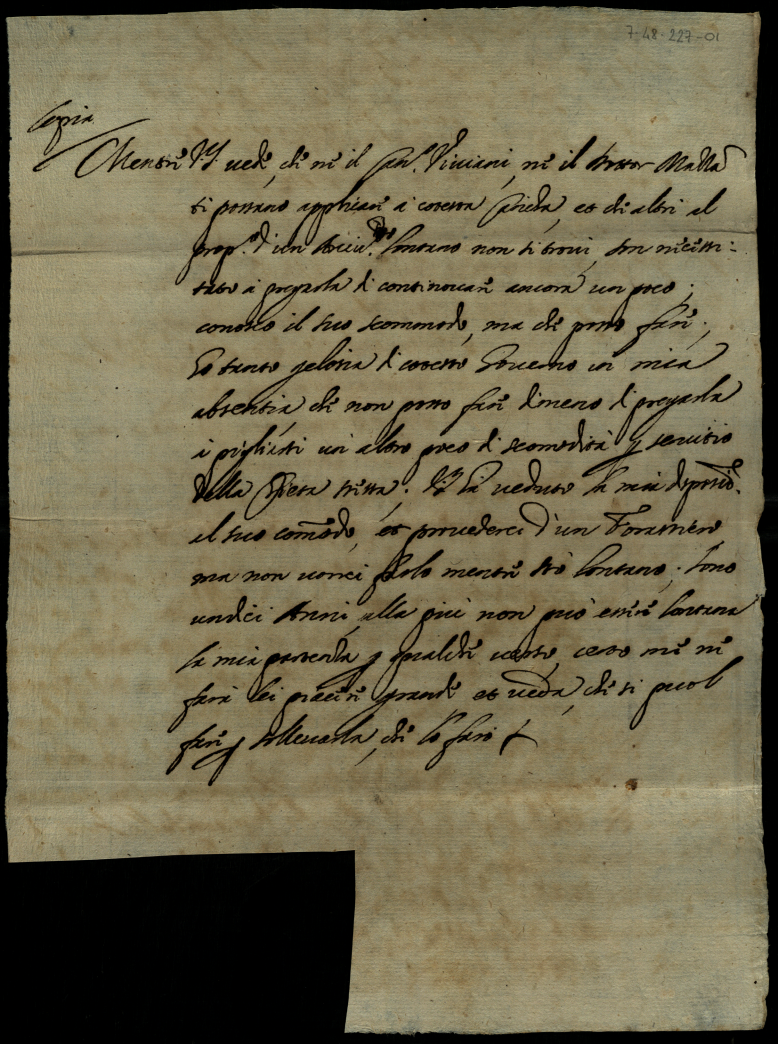 7-48-227-01
Copia
Mentre V.S. vede, che ne il Can.co Viviani, ne il Dottor Malla
si possano applicare a cotesta, et che altri al
prop.o d'un lontano non si trovi, son necessi-
tato a pregarla di continovare ancora un poco;
conosco il suo scommodo, ma che posso fare;
Ho tanto gelosia di cotesto Governo in mia
absentia, che non posso fare dimeno di pregarla
a pigliarsi un altro poco di scomodità p servitio
della stessa. V.S. ha veduto la mia dispositio.
al suo comodo, et provederci d'un Forastiero
ma non vorrei farlo mentre stò lontano; Sono
undici Anni, alla più non può essere lontana
la mia partenza p qualche certo, me ne
farà lei piacere grande et veda, che si puol
fare p sollevarla, che lo farò